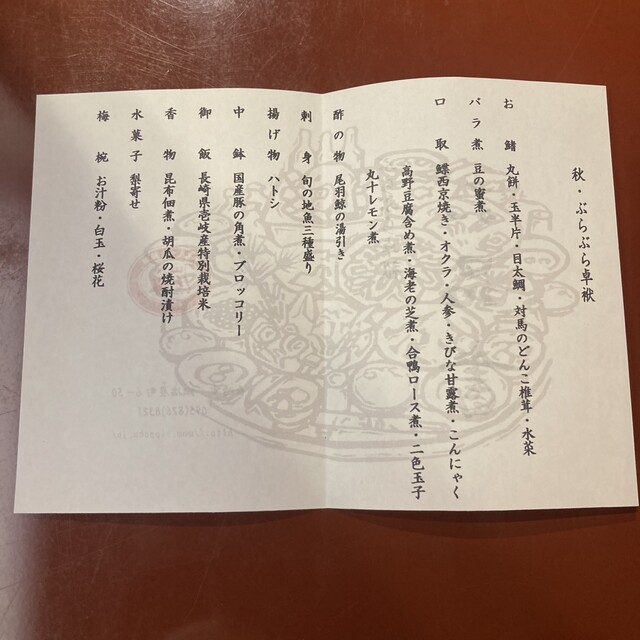 秋・ぶらぶら卓袱
お鰭 丸餅・玉半片・目太鯛・対馬のどんこ椎茸・水菜
バラ煮 豆の蜜煮
口取 鰈西京焼き・オクラ・人参・きびな甘露煮・こんにゃく
高野豆腐含め煮・海老の芝煮・合鴨ロース煮・二色玉子
丸十レモン煮
酢の物 尾羽鯨の湯引き
刺身 旬の地魚三種盛り
揚げ物 ハトシ
中鉢 国産豚の角煮・ブロッコリー
御飯 長崎県壱岐産特別栽培米
香物 昆布佃煮・胡瓜の焼酎漬け
水菓子 梨寄せ
梅椀 お汁粉・白玉・桜花